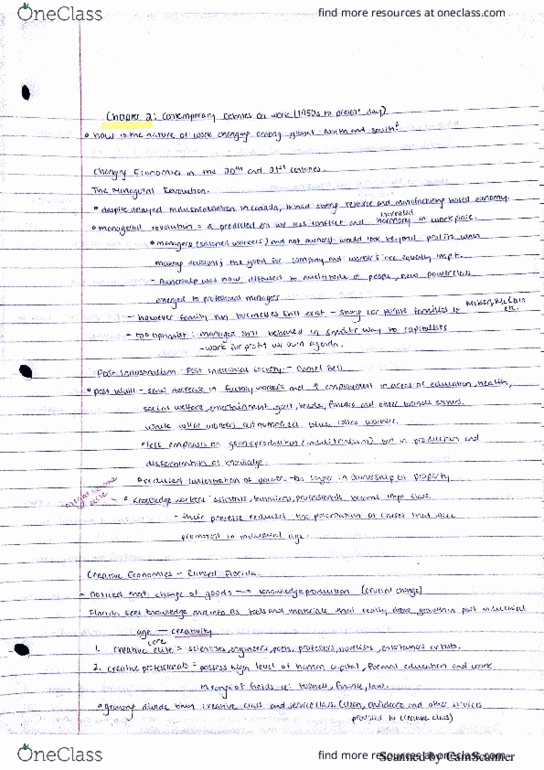 OneClass
find more resources at oneclass.com
Chapter 2: Contemporary Debates on work (1950s to present day)
how is the nature of work changing among global North and south?
Changing Economies in the 20th and 21st centuries.
The Managerial Revolution.
despite delayed industrialization in Canada, it had strong resource and manufacturing based economy.
managerial revolution = a predicted on w/ less conflict and increased harmony in workplace.
managers (salaried workers) and not owners) would look beyond profits when
making decisions; the good for company and workers are equally impt.
- ownership was now diffused to multitude of people, new powerful
emerged to professional managers
- however family run businesses still exist - strong corporate families ie
etc.
- too optimistic: managers still behaved in similar way to capitalists
- work for profit w/ own agenda.
Post Industrialism: Post industrial society - Daniel Bell
post WWII - saw decrease in factory workers and ↑ employment in areas of education, health,
social welfare, entertainment, govt, trade, finance and other business services.
white collar workers outnumbered blue collar workers.
less emphasis on goods production (industrialism), but in production and
dissemination of knowledge.
reduced concentration of power - no longer in ownership of property
knowledge workers: scientists, technicians, professionals become impt class.
- their presence reduces the polarization of classes that were
prominent in industrial age.
Creative Economies - Richard Florida.
noticed most change of goods → knowledge production (crucial change)
Florida sees knowledge and info as tools and materials that really drove growth in post industrial
age — creativity
core
1. creative elite = scientists, engineers, poets, professors, novelists, entertainers artists.
2. creative professionals = possess high level of human capital, formal education and work
in range of fields ie: business, finance, law.
growing divide btwn creative class and service class (clean, childcare and other services
provided to creative class)
OneClass
find more resources at oneclass.com
Scanned by CamScanner